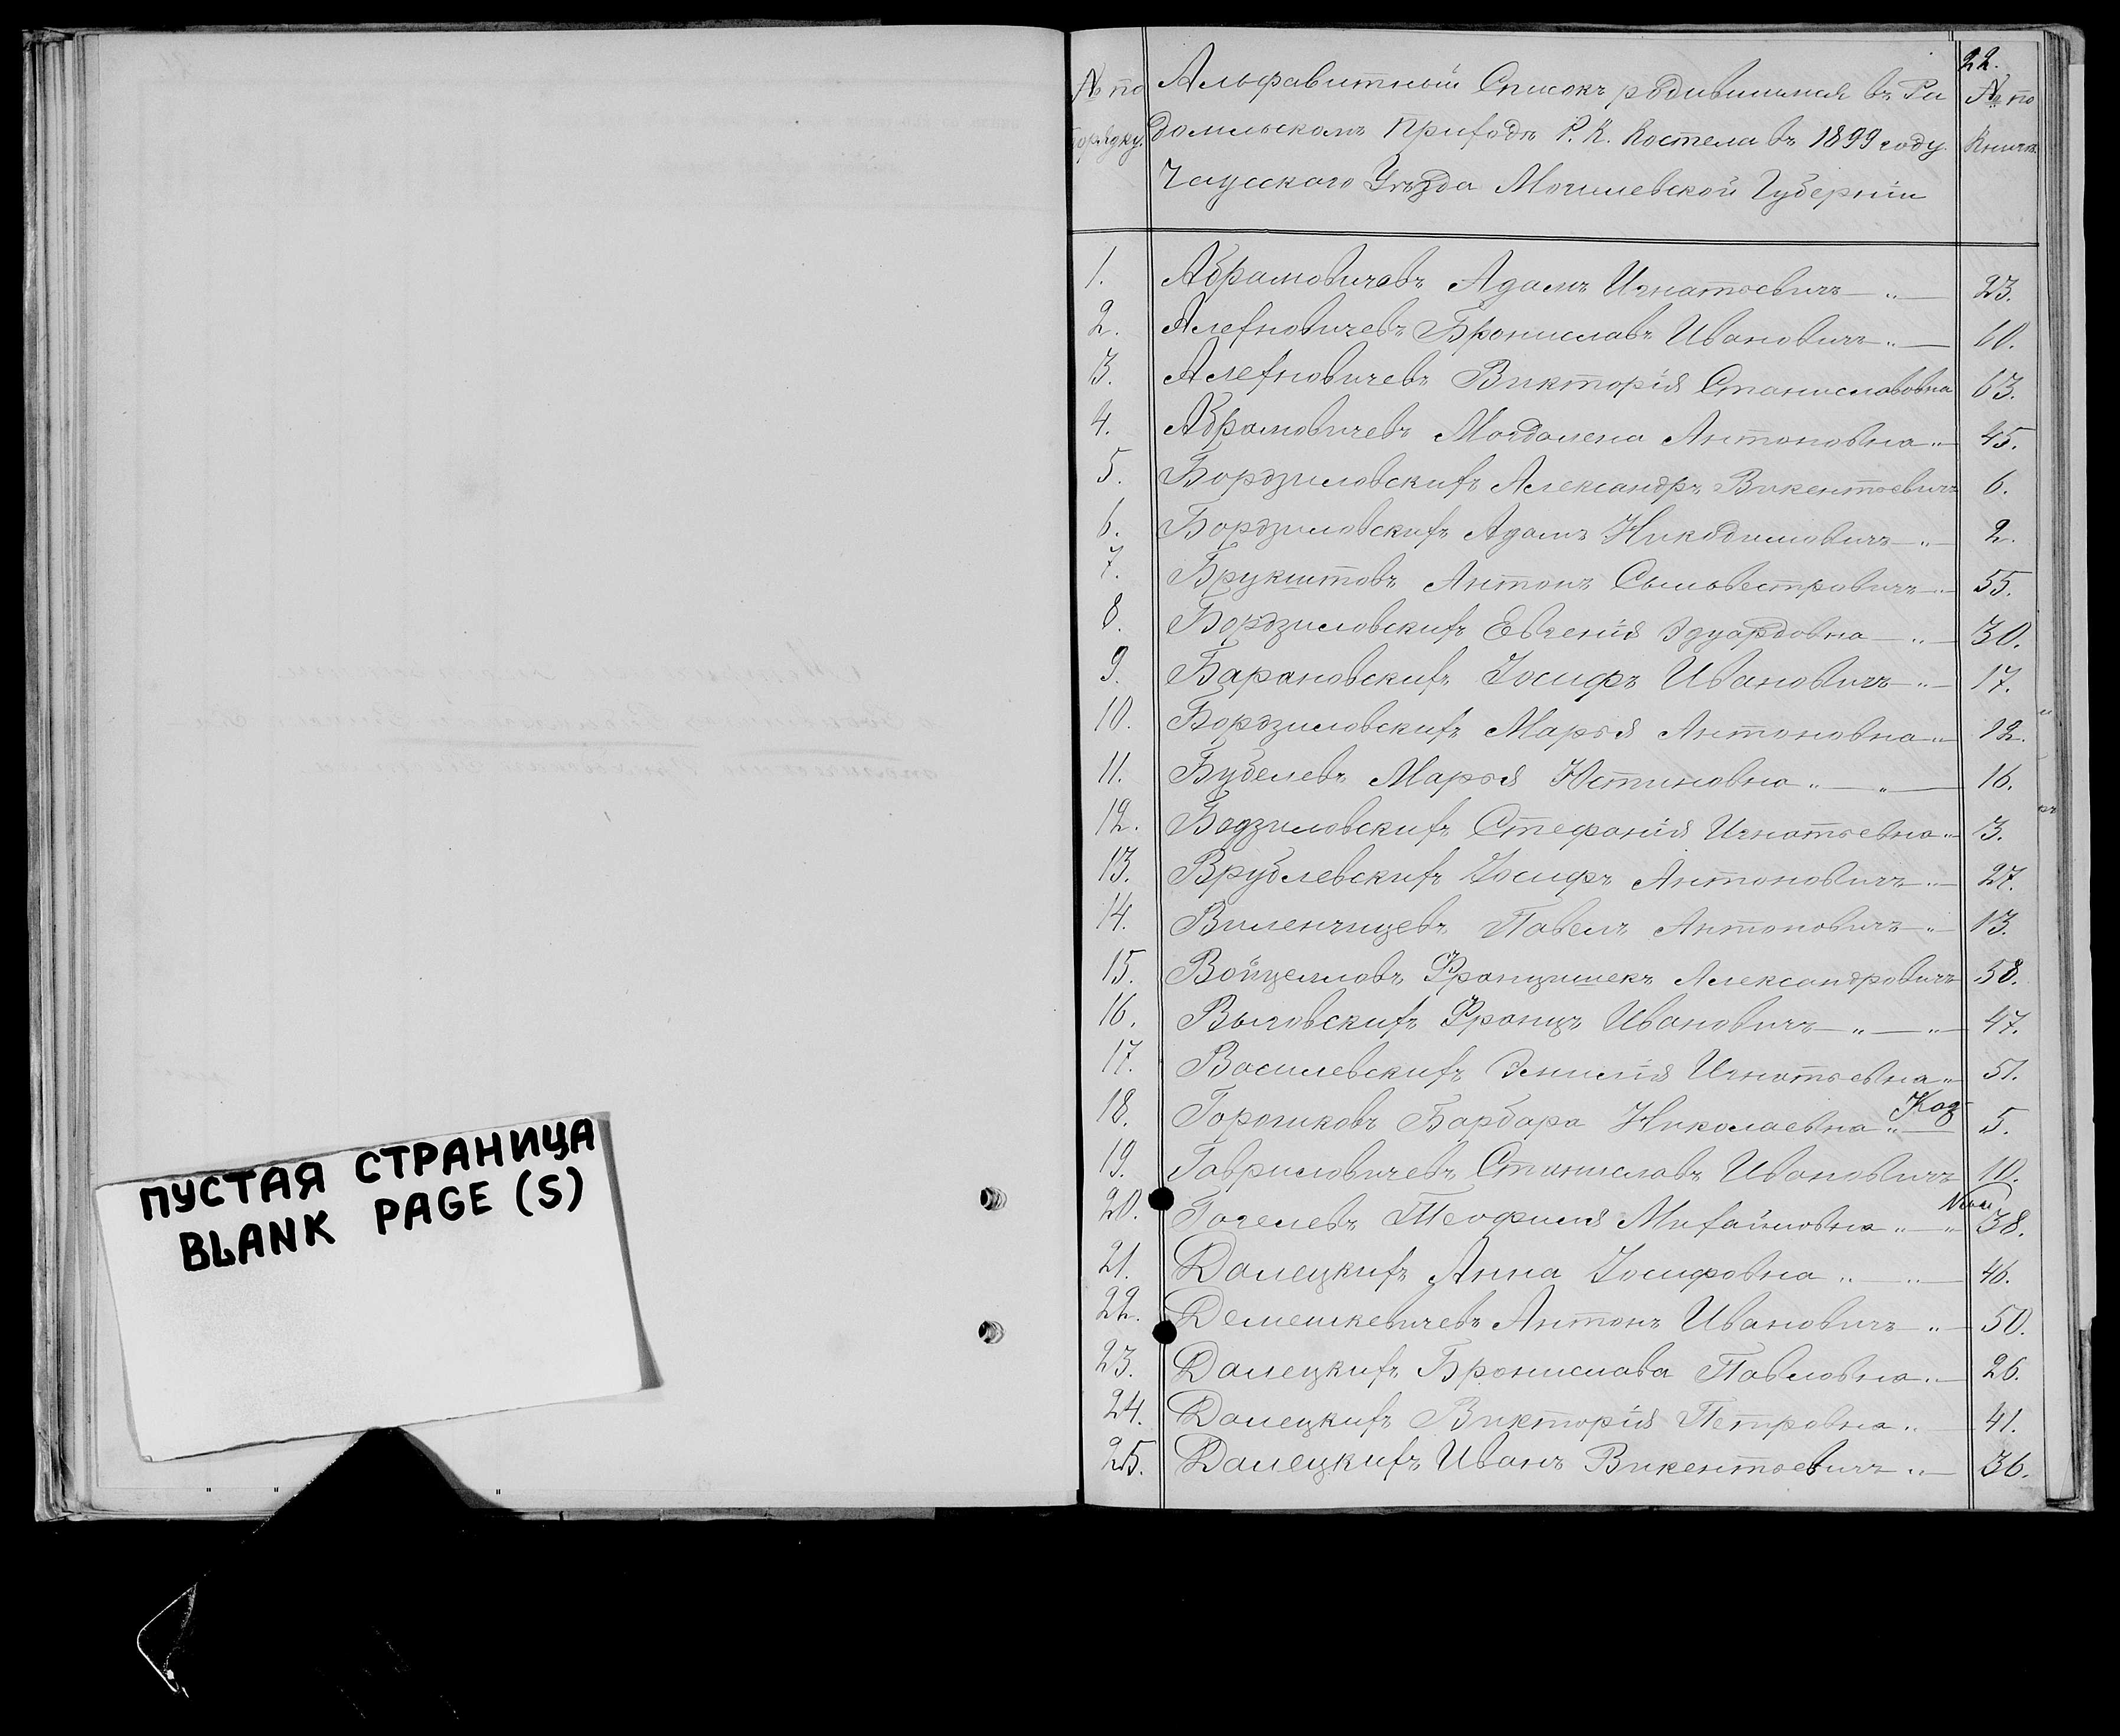 ПУСТАЯ СТРАНИЦА
BLANK PAGE (S)
22.
№ по порядку.
Альфавитный Списокъ родившихся въ Ра
домльскомъ Приходѣ Р. К. Костела въ 1899 году
Чаусскаго Уѣзда Могилевской Губерніи
№ по Книгѣ.
1. Абрамовичевъ Адамъ Игнатьевичъ 23.
2. Алехновичевъ Брониславъ Ивановичъ 60.
3. Алехновичевъ Викторія Станиславовна 63.
4. Абрамовичевъ Магдалена Антоновна 45.
5. Бордзиловскихъ Александръ Викентьевичъ 6.
6. Бордзиловскихъ Адамъ Никодимовичъ 2.
7. Брукштовъ Антонъ Сыльвестровичъ 55.
8. Бордзиловскихъ Евгенія Эдуардовна 30.
9. Барановскихъ Іосифъ Ивановичъ 17.
10. Бордзиловскихъ Марья Антоновна 12.
11. Бубелевъ Марья Юстиновна 16.
12. Бодзиловскихъ Стефанія Игнатьевна 3.
13. Врублевскихъ Іосифъ Антоновичъ 27.
14. Виленчицевъ Павелъ Антоновичъ 13.
15. Войцелловъ Францишекъ Александровичъ 58.
16. Выговскихъ Францъ Ивановичъ 47.
17. Василевскихъ Эмилія Игнатьевна 51.
18. Горошковъ Барбара Николаевна 5.
19. Гавриловичевъ Станиславъ Ивановичъ 10.
20. Гогелевъ Теофилія Михайловна 38.
21. Далецкихъ Анна Іосифовна 46.
22. Демешкевичевъ Антонъ Ивановичъ 50.
23. Далецкихъ Бронислава Павловна 26.
24. Далецкихъ Викторія Петровна 41.
25. Далецкихъ Иванъ Викентьевичъ 36.